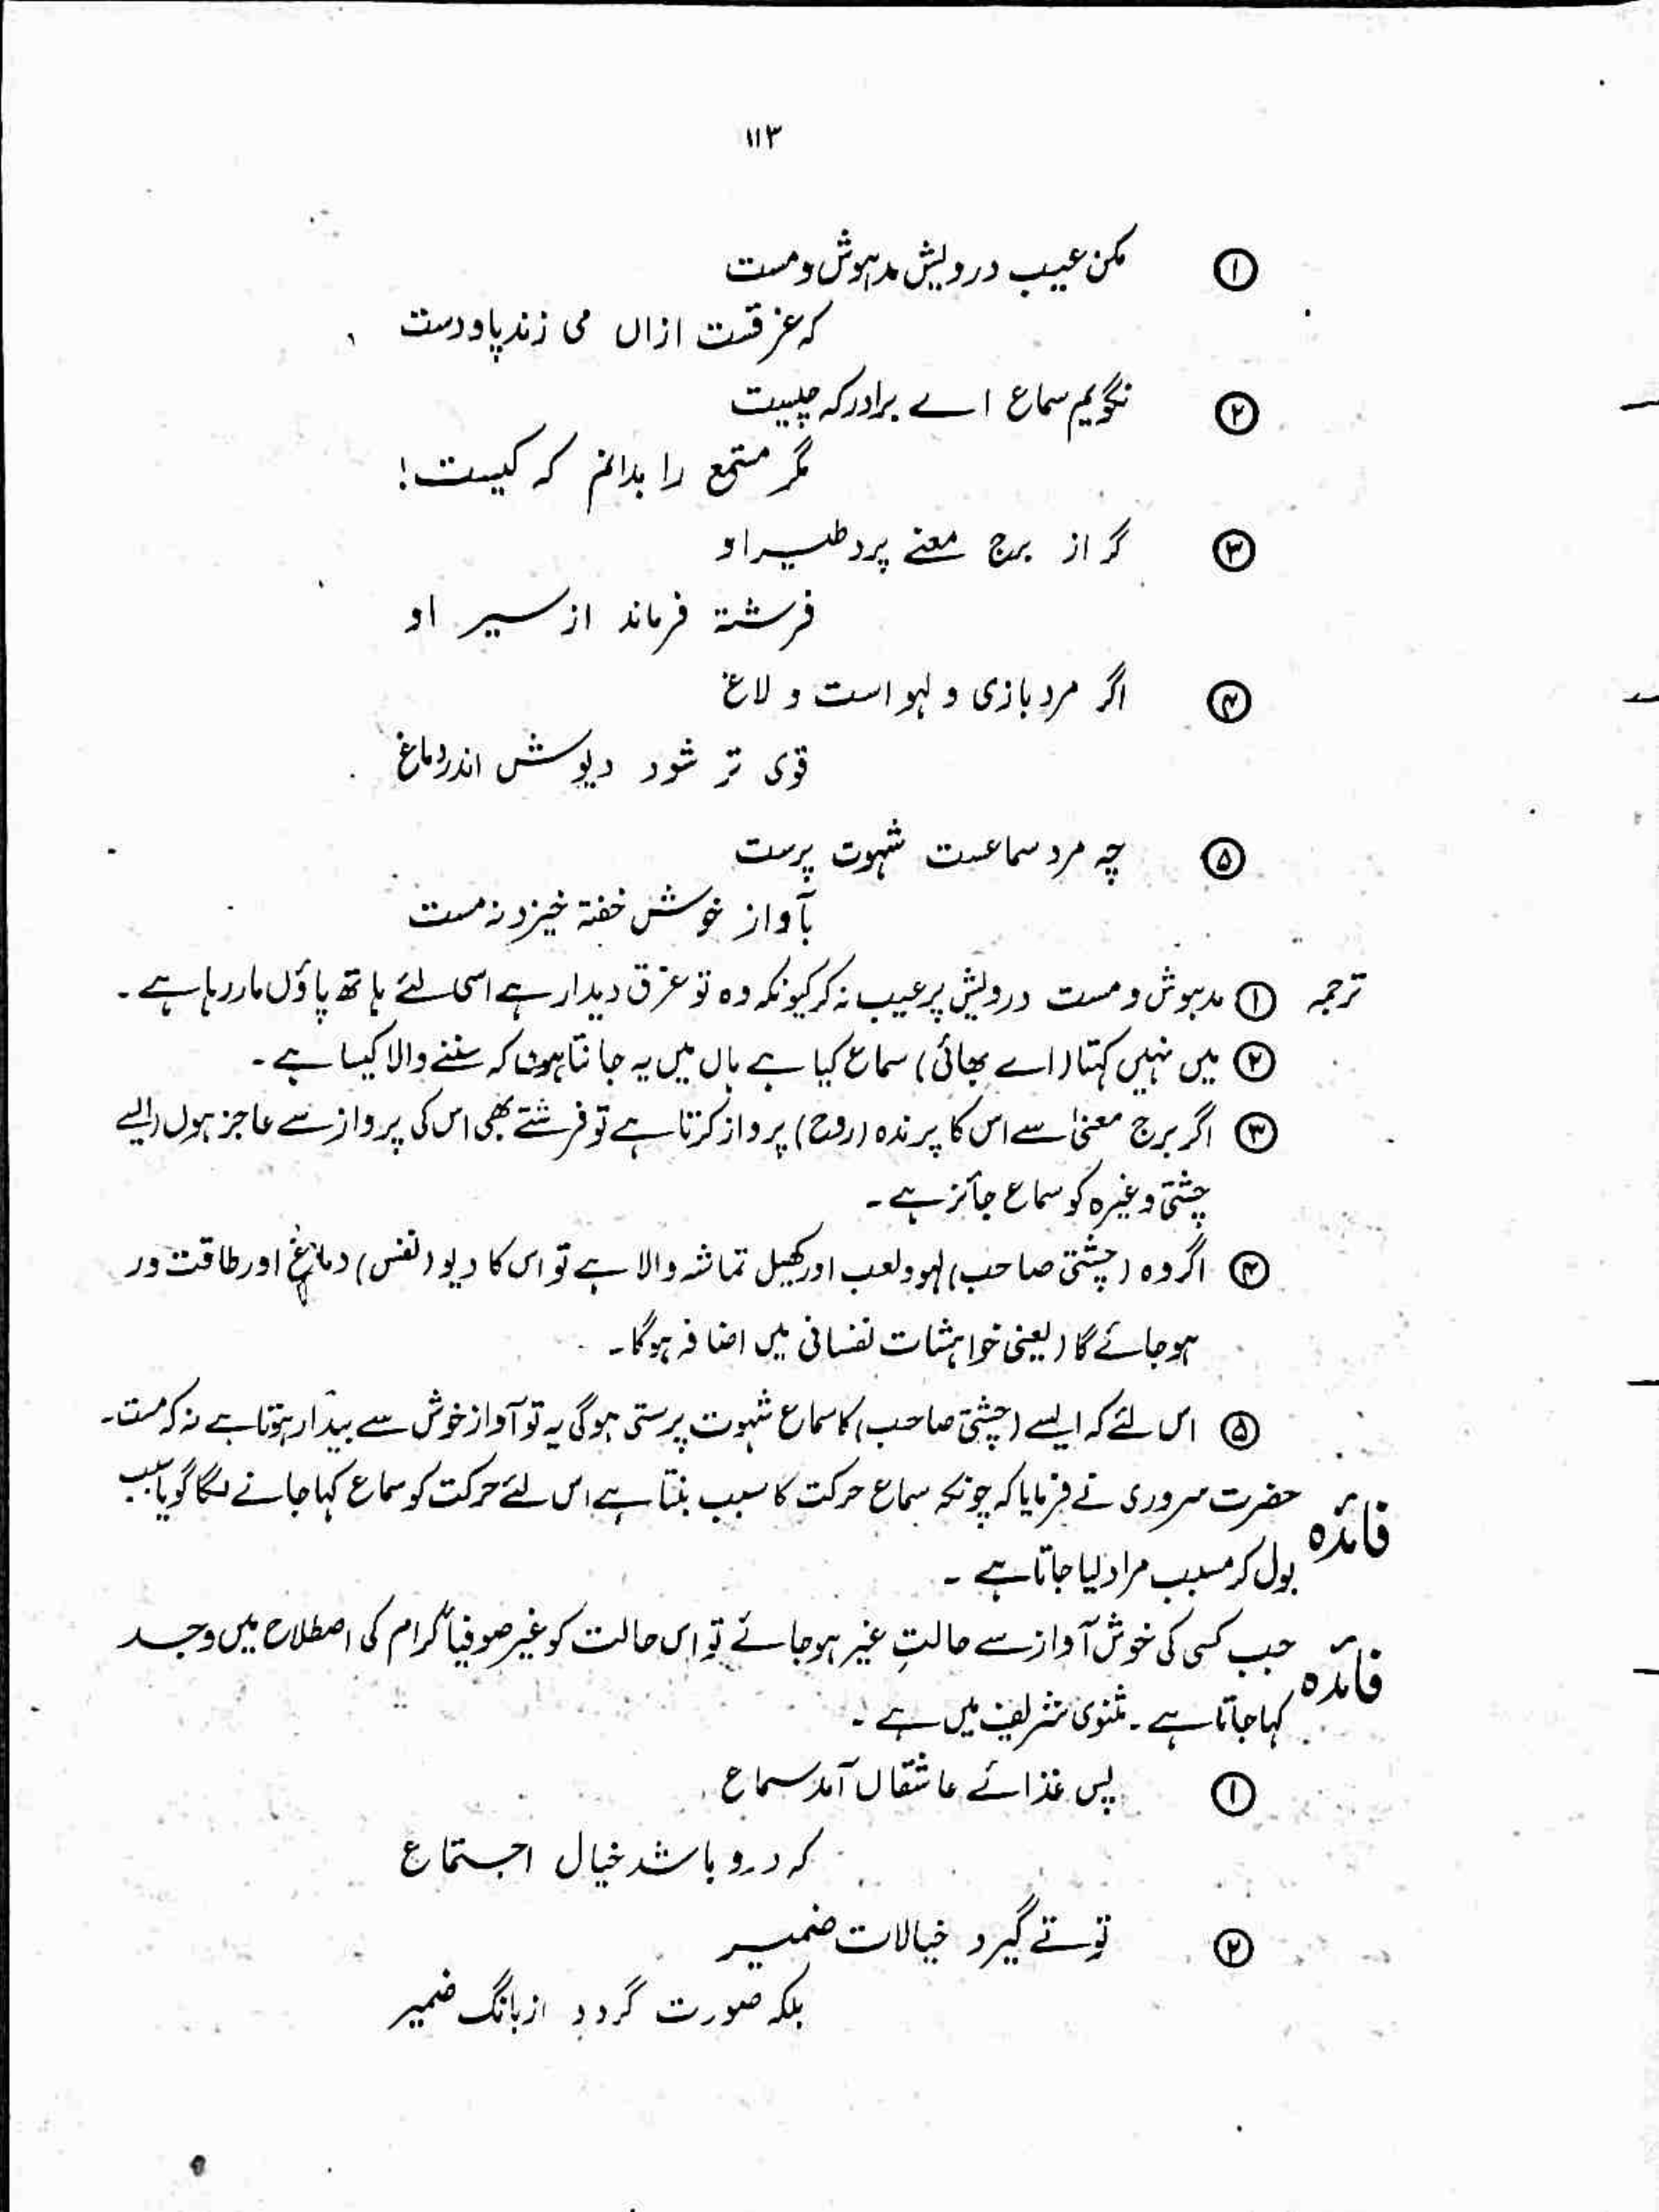 ۱۱۳
① مکن عیب درویش مدہوش و مست
کہ غرقست ازاں می زند پا و دست
② نگویم سماع اے برادر کہ چیست
مگر مستمع را بدانم کہ کیست!
③ گر از برج معنے پرد طیر او
فرشتہ فرماند از سیر او
④ اگر مرد بازی و لہو است و لاغ
قوی تر شود دیوش اندر دماغ
⑤ چہ مرد سماعست شہوت پرست
بآواز خوش خفتہ خیزد نہ مست
ترجمہ ① مدہوش و مست درویش پر عیب نہ کر کیونکہ وہ تو غرق دیدار ہے اسی لئے ہاتھ پاؤں مار رہا ہے۔
② میں نہیں کہتا (اے بھائی) سماع کیا ہے ہاں میں یہ جانتا ہوں کہ سننے والا کیسا ہے۔
③ اگر برج معنیٰ سے اس کا پرندہ (روح) پرواز کرتا ہے تو فرشتے بھی اس کی پرواز سے عاجز ہوں (ایسے
چشتی وغیرہ کو سماع جائز ہے۔
④ اگر وہ (چشتی صاحب) لہو و لعب اور کھیل تماشہ والا ہے تو اس کا دیو (نفس) دماغ اور طاقت ور
ہو جائے گا (یعنی خواہشات نفسانی میں اضافہ ہوگا۔
⑤ اس لئے کہ ایسے (چشتی صاحب) کا سماع شہوت پرستی ہوگی یہ تو آواز خوش سے بیدار ہوتا ہے نہ کہ مست۔
فائدہ حضرت سروری نے فرمایا کہ چونکہ سماع حرکت کا سبب بنتا ہے اس لئے حرکت کو سماع کہا جانے لگا گویا سبب
بول کر مسبب مراد لیا جاتا ہے ۔
فائدہ جب کسی کی خوش آواز سے حالتِ غیر ہو جائے تو اس حالت کو غیر صوفیأ کرام کی اصطلاح میں وجد
کہا جاتا ہے ۔ مثنوی شریف میں ہے ۔
① پس غذائے عاشقاں آمد سماع
کہ درو باشد خیال اجتماع
② قوتے گیرد خیالات ضمیر
بلکہ صورت گردد از بانگ ضمیر